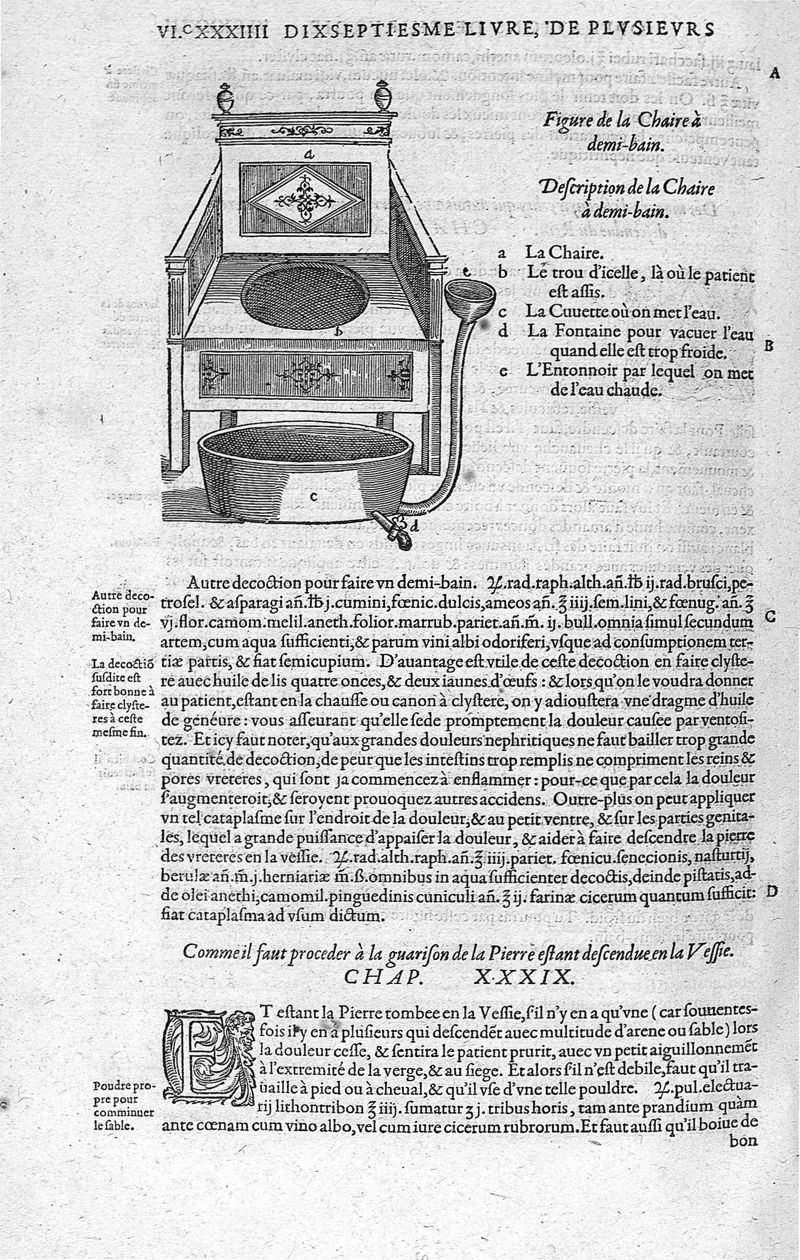 VI.ᶜXXXIIII DIXSEPTIESME LIVRE, DE PLVSIEVRS
A
Figure de la Chaire à
demi-bain.
Description de la Chaire
a demi-bain.
a La Chaire.
b Le trou d'icelle, là où le patient
est assis.
c La Cuuette où on met l'eau.
d La Fontaine pour vacuer l'eau
quand elle est trop froide.
B
e L'Entonnoir par lequel on met
de l'eau chaude.
a
b
e
c
d
Autre deco-
ction pour
faire vn de-
mi-bain.
La decoctiō
susdite est
fort bonne à
faire clyste-
res à ceste
mesme fin.
Autre decoction pour faire vn demi-bain. ♃.rad.raph.alth.añ.℔ ij.rad.brusci,pe-
trosel. & asparagi añ.℔ j.cumini,fœnic.dulcis,ameos añ.℥ iiij.sem.lini,& fœnug. añ.℥
vj.flor.camom.melil.aneth.folior.marrub.pariet.añ.m̃. ij. bull.omnia simul secundum
C
artem,cum aqua sufficienti,& parum vini albi odoriferi,vsque ad consumptionem ter-
tiæ partis, & fiat semicupium. D'auantage est vtile de ceste decoction en faire clyste-
re auec huile de lis quatre onces,& deux iaunes d'œufs : & lors qu'on le voudra donner
au patient,estant en la chausse ou canon à clystere, on y adioustera vne dragme d'huile
de genéure : vous asseurant qu'elle sede promptement la douleur causee par ventosi-
tez. Et icy faut noter,qu'aux grandes douleurs nephritiques ne faut bailler trop grande
quantité de decoction,de peur que les intestins trop remplis ne compriment les reins &
pores vreteres, qui sont ja commencez à enflammer : pour-ce que par cela la douleur
s'augmenteroit,& seroyent prouoquez autres accidens. Outre-plus on peut appliquer
vn tel cataplasme sur l'endroit de la douleur,& au petit ventre, & sur les parties genita-
les, lequel a grande puissance d'appaiser la douleur, & aider à faire descendre la pierre
des vreteres en la vessie. ♃.rad.alth.raph.añ.℥ iiij.pariet. fœnicu.senecionis, nasturtij,
berulæ añ.m̃.j.herniariæ m̃.ß.omnibus in aqua sufficienter decoctis,deinde pistatis,ad-
de olei anethi,camomil.pinguedinis cuniculi añ.℥ ij. farinæ cicerum quantum sufficit:
D
fiat cataplasma ad vsum dictum.
Comme il faut proceder à la guarison de la Pierre estant descendue en la Vessie.
CHAP. XXXIX.
ET estant la Pierre tombee en la Vessie,s'il n'y en a qu'vne ( car souuentes-
fois il y en a plusieurs qui descendēt auec multitude d'arene ou sable) lors
la douleur cesse, & sentira le patient prurit, auec vn petit aiguillonnemēt
à l'extremité de la verge,& au siege. Et alors s'il n'est debile,faut qu'il tra-
uaille à pied ou à cheual,& qu'il vse d'vne telle pouldre. ♃.pul.electua-
rij lithontribon ℥ iiij. sumatur ʒ j. tribus horis, tam ante prandium quàm
ante cœnam cum vino albo,vel cum iure cicerum rubrorum.Et faut aussi qu'il boiue de
bon
Poudre pro-
pre pour
comminuer
le sable.